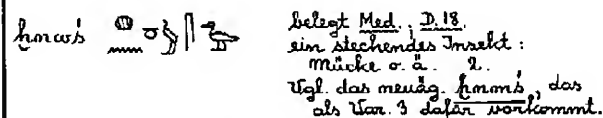 ḫnwś belegt Med. ; D. 18.
ein stechendes Insekt :
Mücke o. ä. 2.
Vgl. das neuäg. ḫnmś, das
als Var. 3 dafür vorkommt.